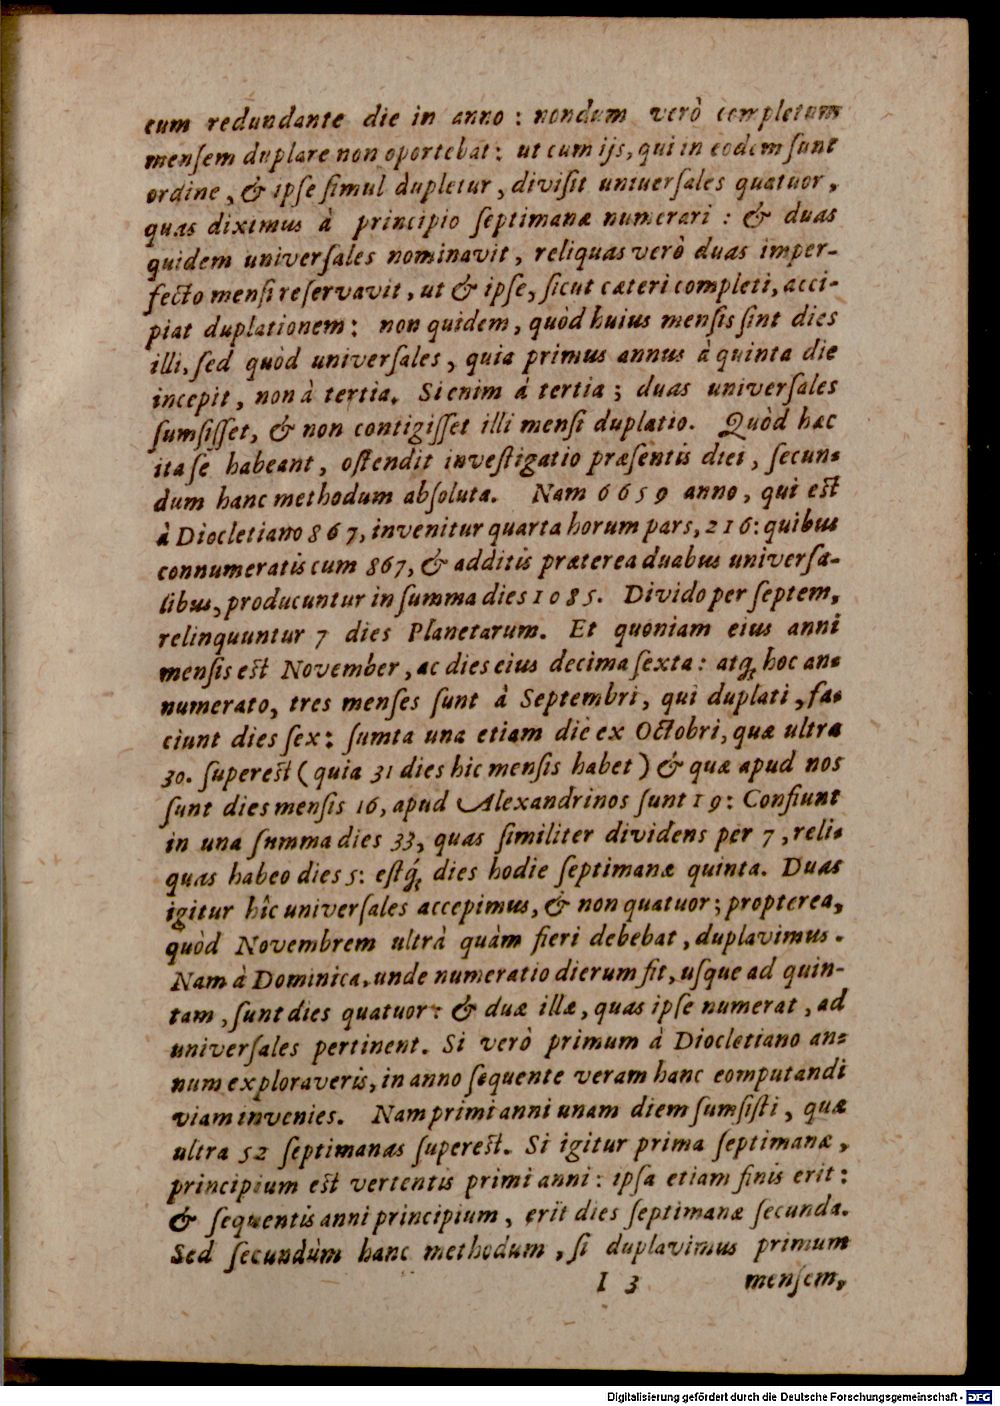 cum redundante die in anno: nondum verò completum
menſem duplare non oportebat: ut cum ijs, qui in eodem ſunt
ordine, & ipſe ſimul dupletur, diviſit uniuerſales quatuor,
quas diximus à principio ſeptimanæ numerari: & duas
quidem univerſales nominavit, reliquas verò duas imper-
fecto menſi reſervavit, ut & ipſe, ſicut cæteri completi, acci-
piat duplationem: non quidem, quòd huius menſis ſint dies
illi, ſed quòd univerſales, quia primus annus à quinta die
incepit, non à tertia. Si enim à tertia; duas univerſales
ſumſiſſet, & non contigiſſet illi menſi duplatio. Quòd hæc
ita ſe habeant, oſtendit inveſtigatio præſentis diei, ſecun-
dum hanc methodum abſoluta. Nam 6659 anno, qui eſt
à Diocletiano 867, invenitur quarta horum pars, 216: quibus
connumeratis cum 867, & additis præterea duabus univerſa-
libus, producuntur in ſumma dies 1085. Divido per ſeptem,
relinquuntur 7 dies Planetarum. Et quoniam eius anni
menſis eſt November, ac dies eius decima ſexta: atq; hoc an-
numerato, tres menſes ſunt à Septembri, qui duplati, fa-
ciunt dies ſex: ſumta una etiam die ex Octobri, quæ ultra
30. ſupereſt (quia 31 dies hic menſis habet) & quæ apud nos
ſunt dies menſis 16, apud Alexandrinos ſunt 19: Confiunt
in una ſumma dies 33, quas ſimiliter dividens per 7, reli-
quas habeo dies 5: eſtq́; dies hodie ſeptimanæ quinta. Duas
igitur hîc univerſales accepimus, & non quatuor; propterea,
quòd Novembrem ultrà quàm fieri debebat, duplavimus.
Nam à Dominica, unde numeratio dierum fit, uſque ad quin-
tam, ſunt dies quatuor: & duæ illæ, quas ipſe numerat, ad
univerſales pertinent. Si verò primum à Diocletiano an-
num exploraveris, in anno ſequente veram hanc computandi
viam invenies. Nam primi anni unam diem ſumſiſti, quæ
ultra 52 ſeptimanas ſupereſt. Si igitur prima ſeptimanæ,
principium eſt vertentis primi anni: ipſa etiam finis erit:
& ſequentis anni principium, erit dies ſeptimanæ ſecunda.
Sed ſecundùm hanc methodum, ſi duplavimus primum
I 3 menſem,
Digitalisierung gefördert durch die Deutsche Forschungsgemeinschaft - DFG